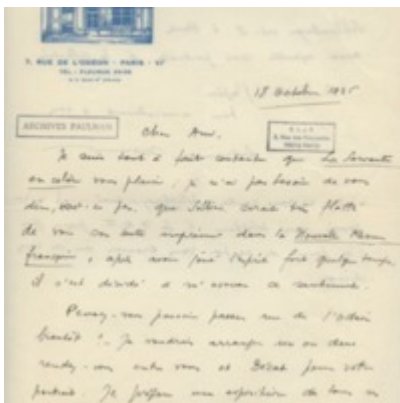 7, RUE DE L'ODÉON - PARIS - VIᵉ
TÉL.: FLEURUS 25-05
18 Octobre 1935
ARCHIVES PAULHAN
Cher Ami,
Je suis tout à fait contente que La Servante
en colère vous plaise, je n'ai pas besoin de vous
dire, que serait très flatté
de voir imprimer dans la Nouvelle Revue
française, après avoir l'esprit fort quelque temps
il s'est décidé à m'avouer
Pensez-vous pouvoir passer rue de l'Odéon
bientôt ? Je voudrais arranger un ou deux
rendez-vous entre vous et pour votre
portrait. Je prépare une exposition de tous